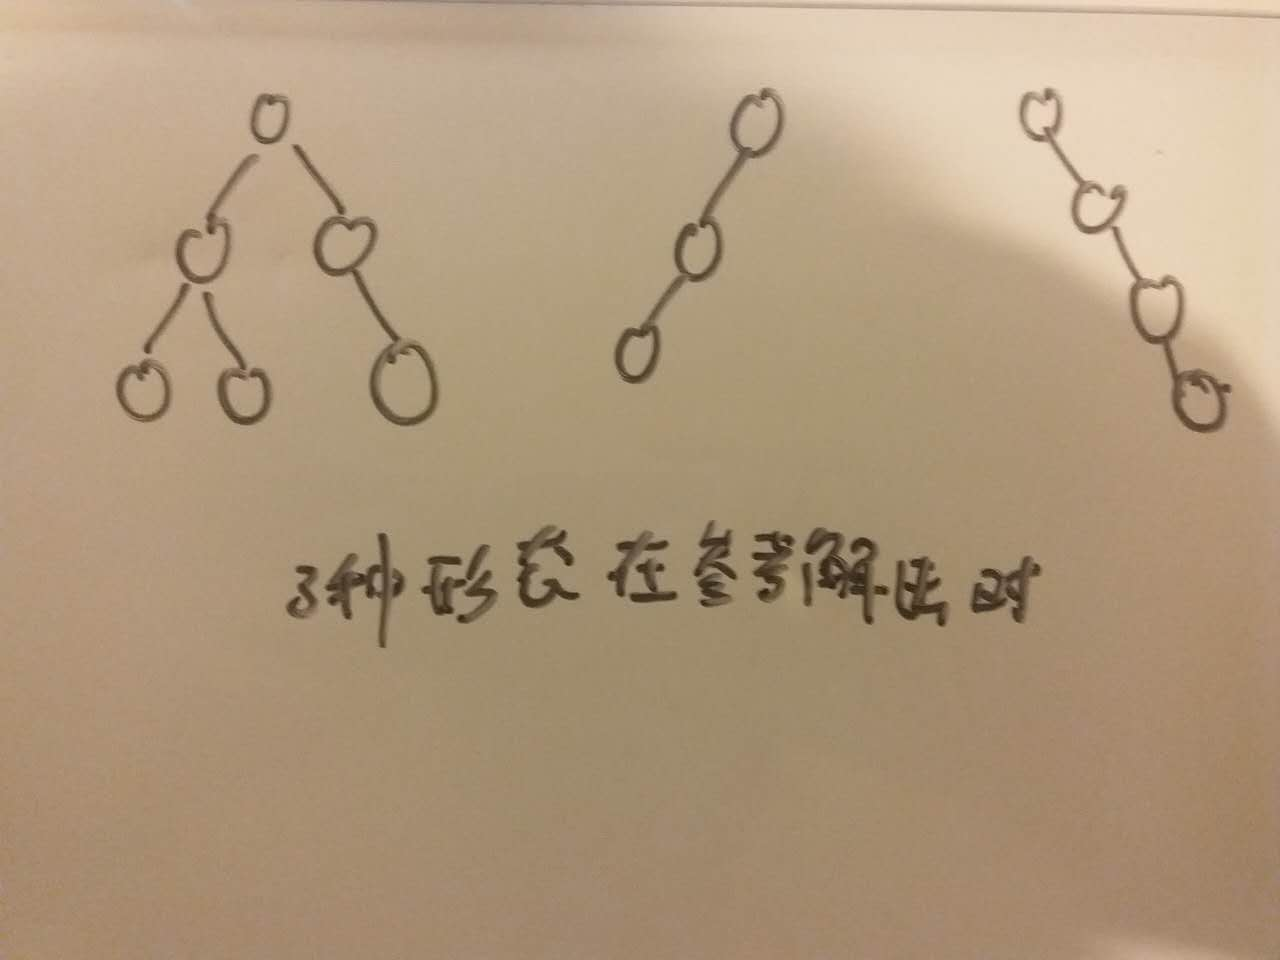 3种形态在参考解法时